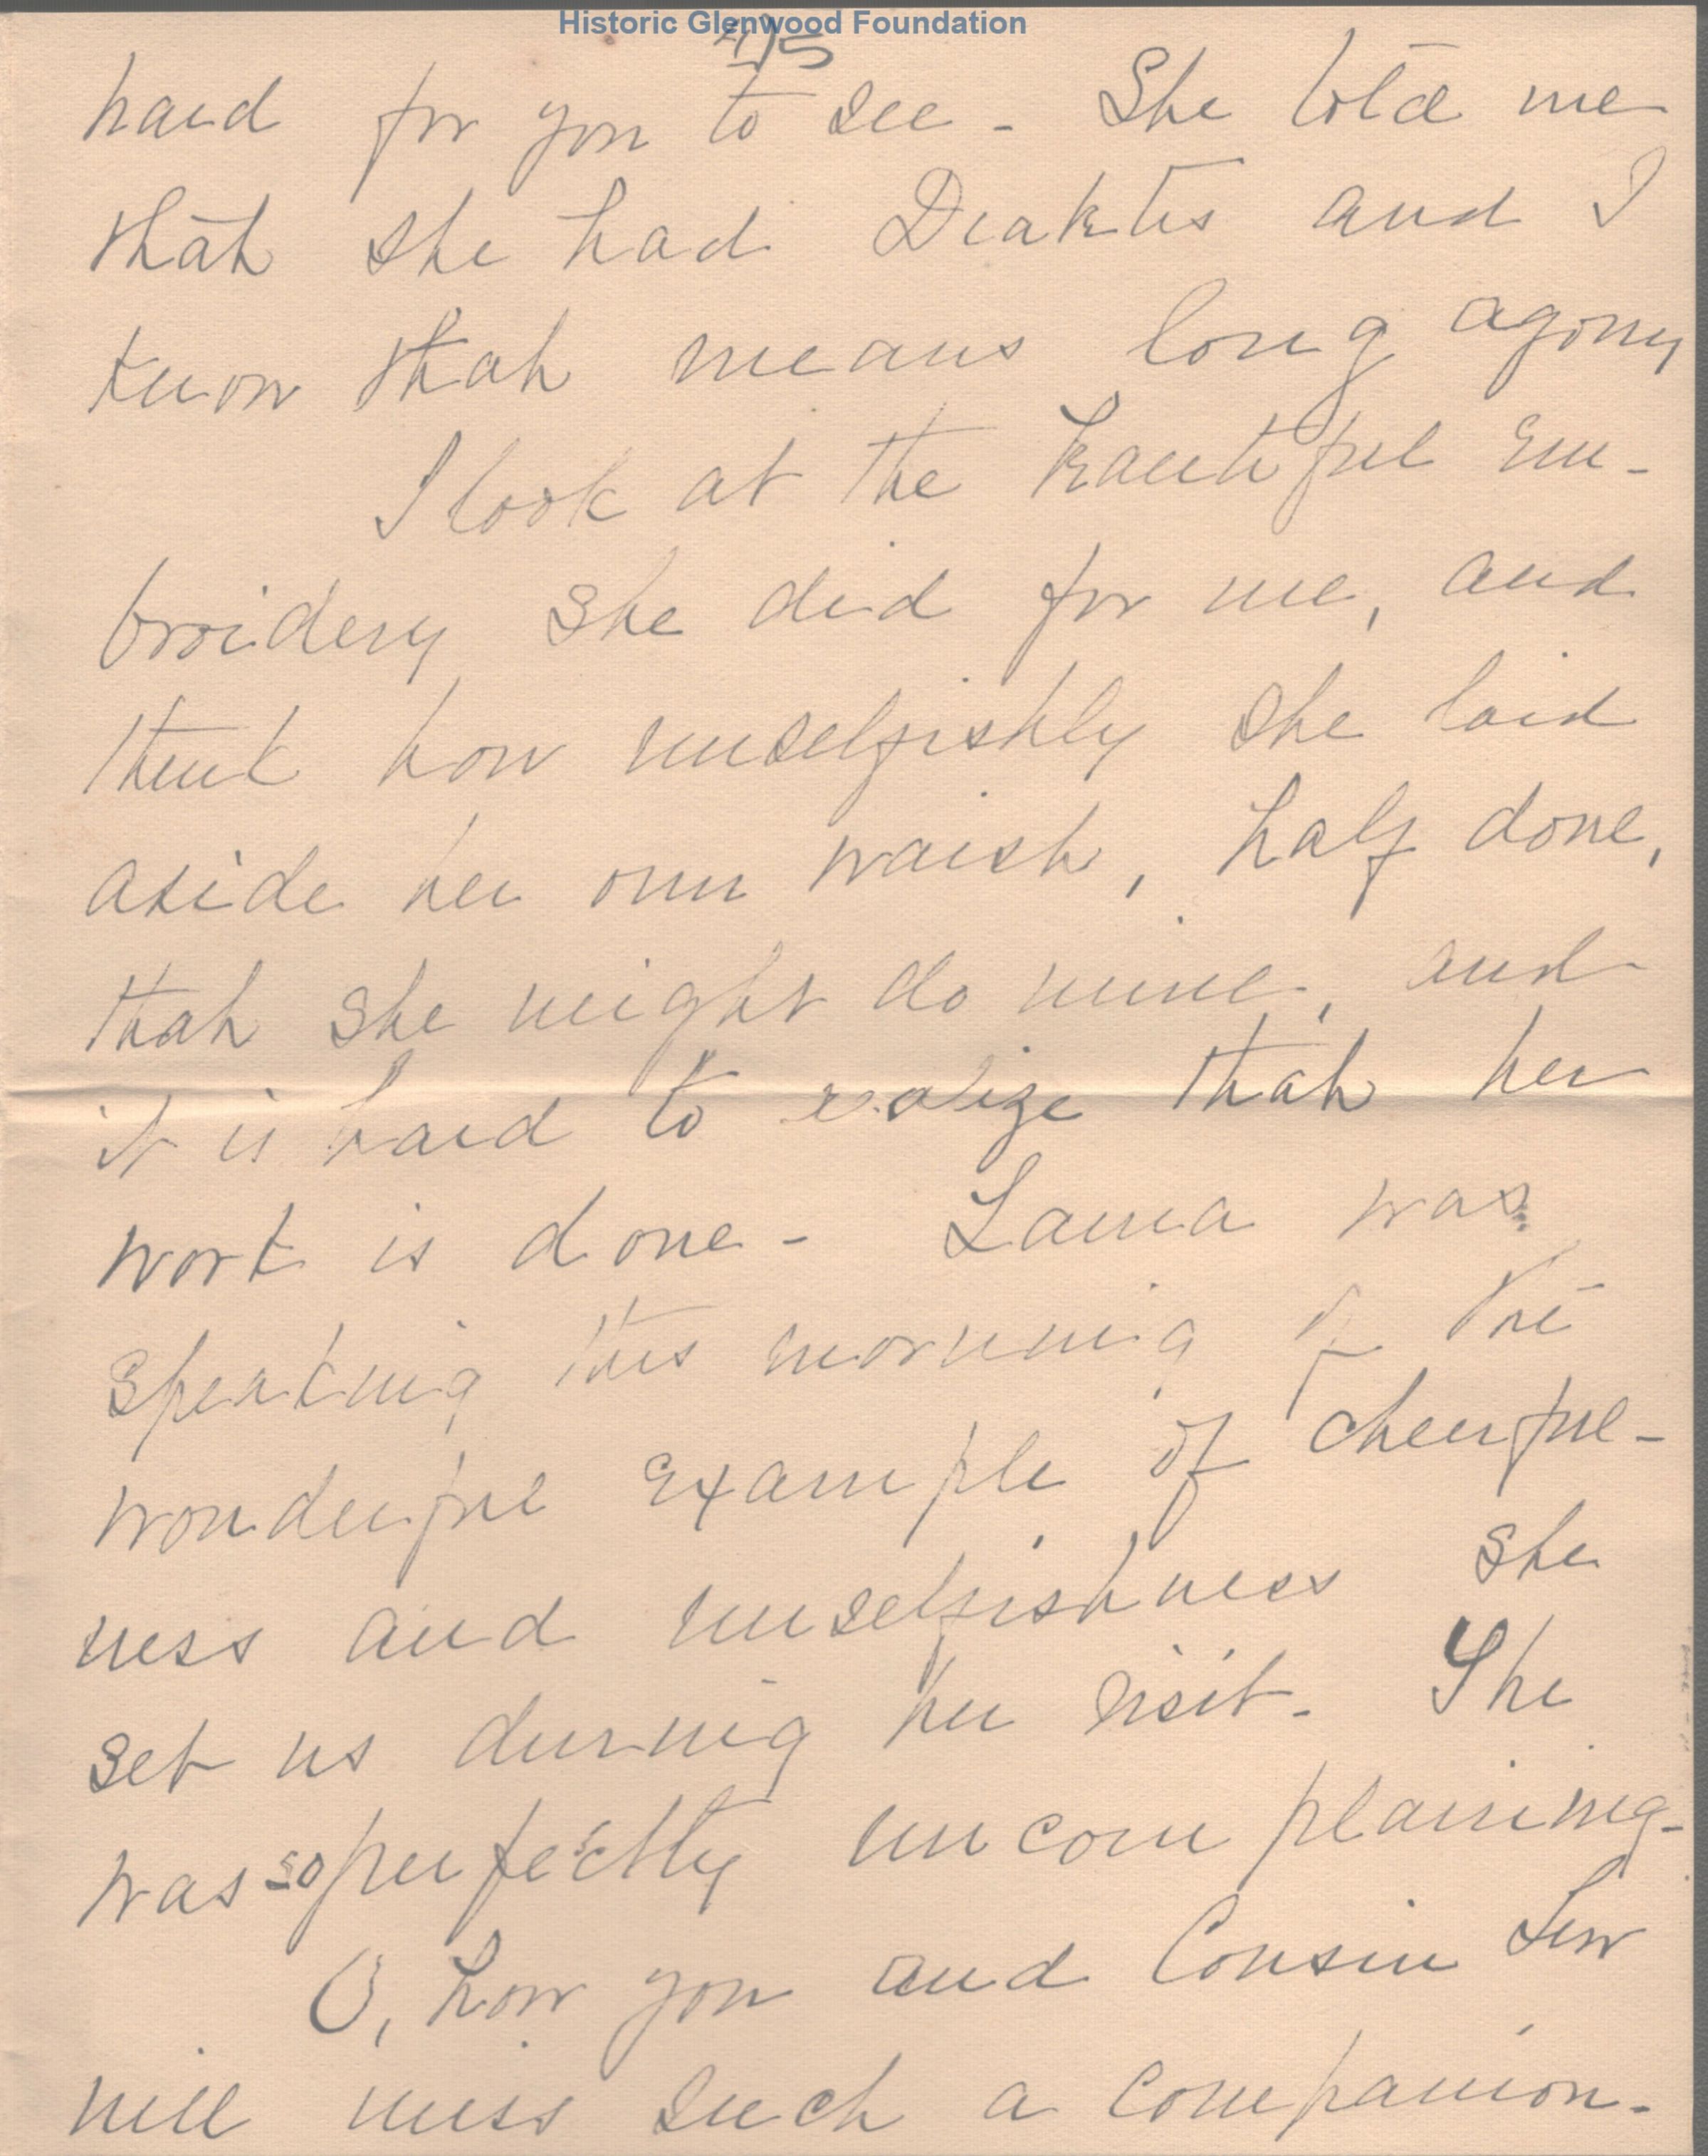 Historic Glenwood Foundation
hard for you to see - She told me
that she had Diabetes and I
know that means long agony
I look at the beautiful em-
broidery she did for me, and
think how unselfishly she laid
aside her own waist, half done,
that she might do mine, and
it is hard to realize that her
work is done - Laura was
speaking this morning of the
wonderful example of cheerful-
ness and unselfishness she
set us during her visit. She
was so perfectly uncomplaining -
O, how you and Cousin Lew
will miss such a companion -